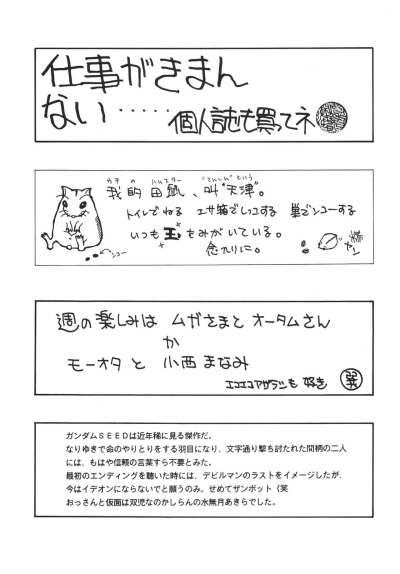 仕事がきまん
ない・・・・・個人誌も買ってネ
ウチ の ハムスター "てんしん"という
我的田鼠、叫"天津"。
トイレでねる エサ箱でしっこする 巣でシコーする
いつも玉をみがいている。
念入りに。
週の楽しみは ムガさまと オータムさん
か
モーオタ と 小西 まなみ
エコエコアザラシも 好き
ガンダムＳＥＥＤは近年稀に見る傑作だ。
なりゆきで命のやりとりをする羽目になり、文字通り撃ち討たれた間柄の二人
には、もはや信頼の言葉すら不要とみた。
最初のエンディングを聴いた時には、デビルマンのラストをイメージしたが、
今はイデオンにならないでと願うのみ。せめてザンボット（笑
おっさんと仮面は双児なのかしらんの水無月あきらでした。